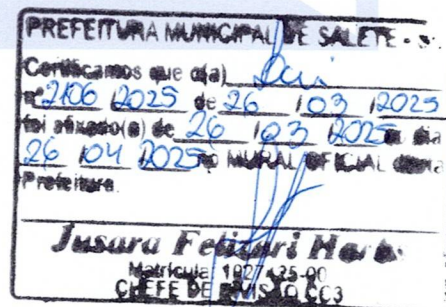 PREFEITURA MUNICIPAL DE SALETE - S
Certificamos que o(a) Lei
nº 2106 /2025 de 26 / 03 /2025
foi afixado(o) de 26 / 03 /2025 a dia
26 / 04 /2025 no MURAL OFICIAL desta
Prefeitura.
Jusara
Matrícula
CHEFE DE DIVISÃO CC3